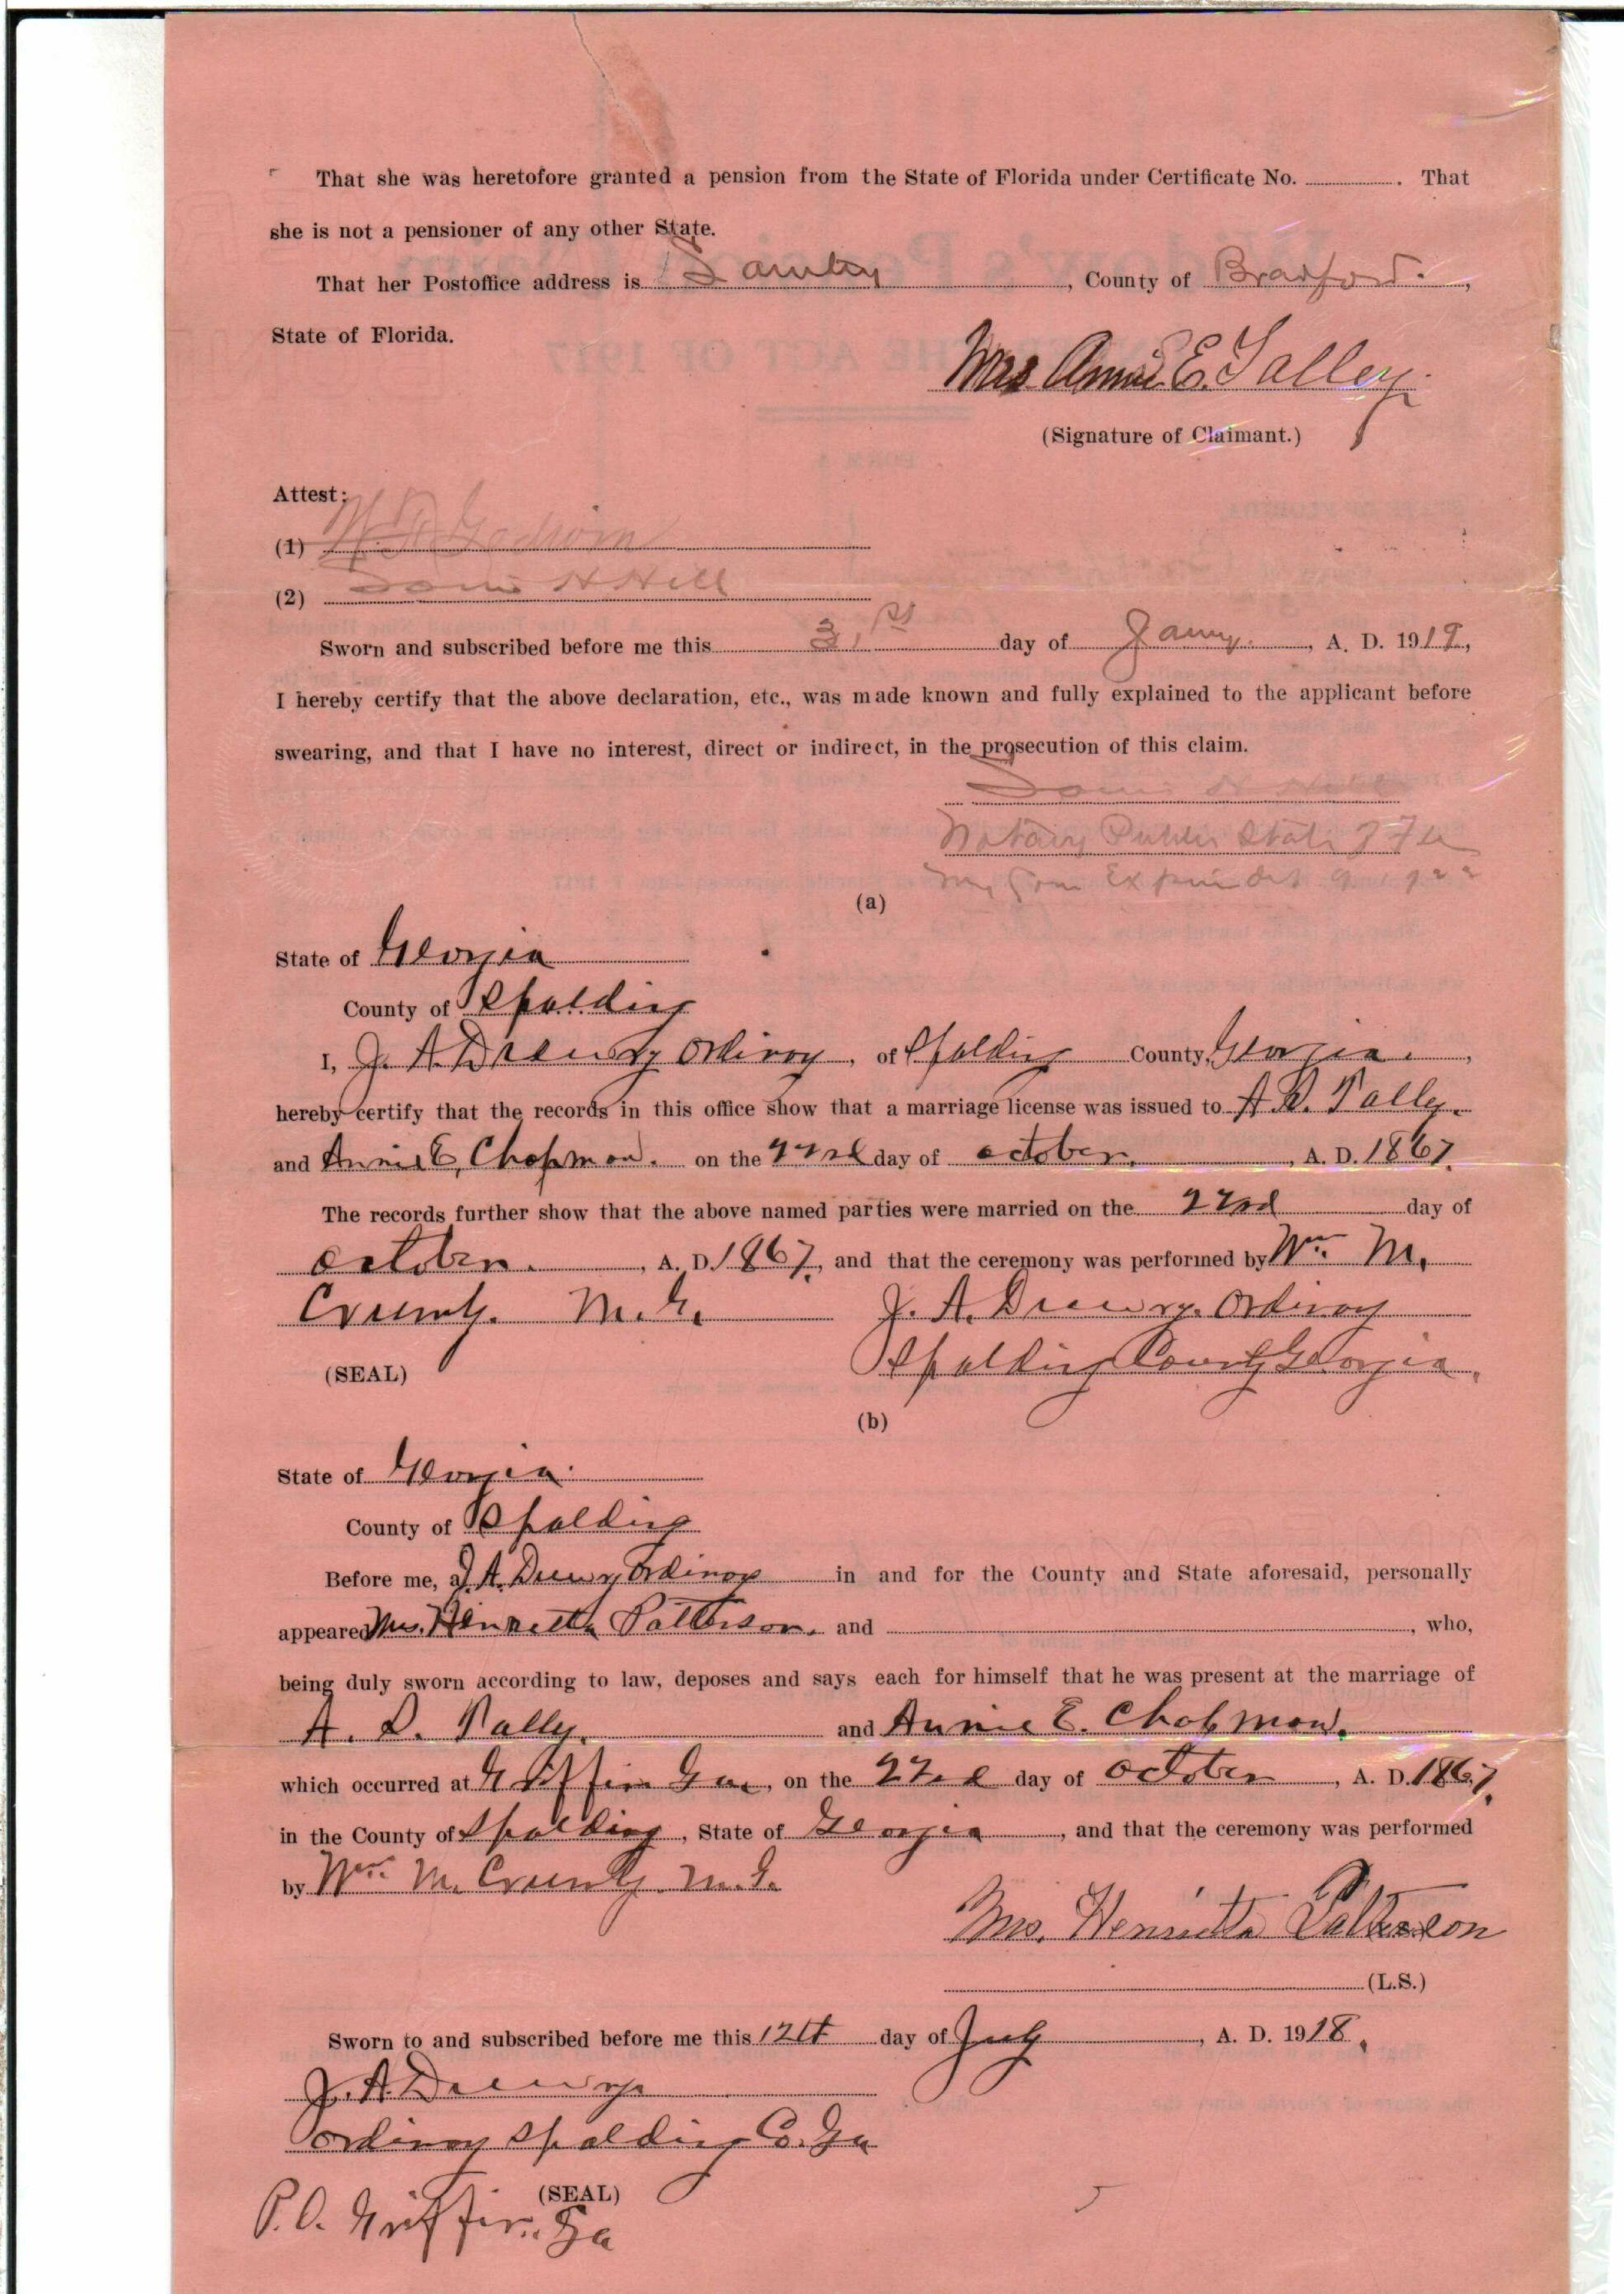 That she was heretofore granted a pension from the State of Florida under Certificate No. . That
she is not a pensioner of any other State.
That her Postoffice address is Lawtey, County of Bradford.,
State of Florida.
Mrs Annie E. Talley.
(Signature of Claimant.)
Attest:
(1)
(2) H Hill
Sworn and subscribed before me this 31st day of Jany., A. D. 1919,
I hereby certify that the above declaration, etc., was made known and fully explained to the applicant before
swearing, and that I have no interest, direct or indirect, in the prosecution of this claim.
H Hill
Notary Public State of Fla
My Com Expires
(a)
State of Georgia
County of Spalding
I, J. A. Drewry Ordinary, of Spalding County, Georgia.,
hereby certify that the records in this office show that a marriage license was issued to A. D. Tally.
and Annie E. Chapman. on the 22nd day of October, A. D. 1867.
The records further show that the above named parties were married on the 22nd day of
October., A. D. 1867, and that the ceremony was performed by Wm. M.
Crumly. M. G. J. A. Drewry. Ordinary
Spalding County Georgia.
(SEAL)
(b)
State of Georgia.
County of Spalding
Before me, a J. A. Drewry Ordinary in and for the County and State aforesaid, personally
appeared Mrs. Henrietta Patterson. and , who,
being duly sworn according to law, deposes and says each for himself that he was present at the marriage of
A. D. Tally. and Annie E. Chapman.
which occurred at Griffin Ga., on the 22nd day of October, A. D. 1867.
in the County of Spalding, State of Georgia, and that the ceremony was performed
by Wm. M. Crumly. M. G.
Mrs. Henrietta Patterson
(L.S.)
Sworn to and subscribed before me this 12th day of July, A. D. 1918.
J. A. Drewry
Ordinary Spalding Co. Ga
(SEAL)
P. O. Griffin. Ga